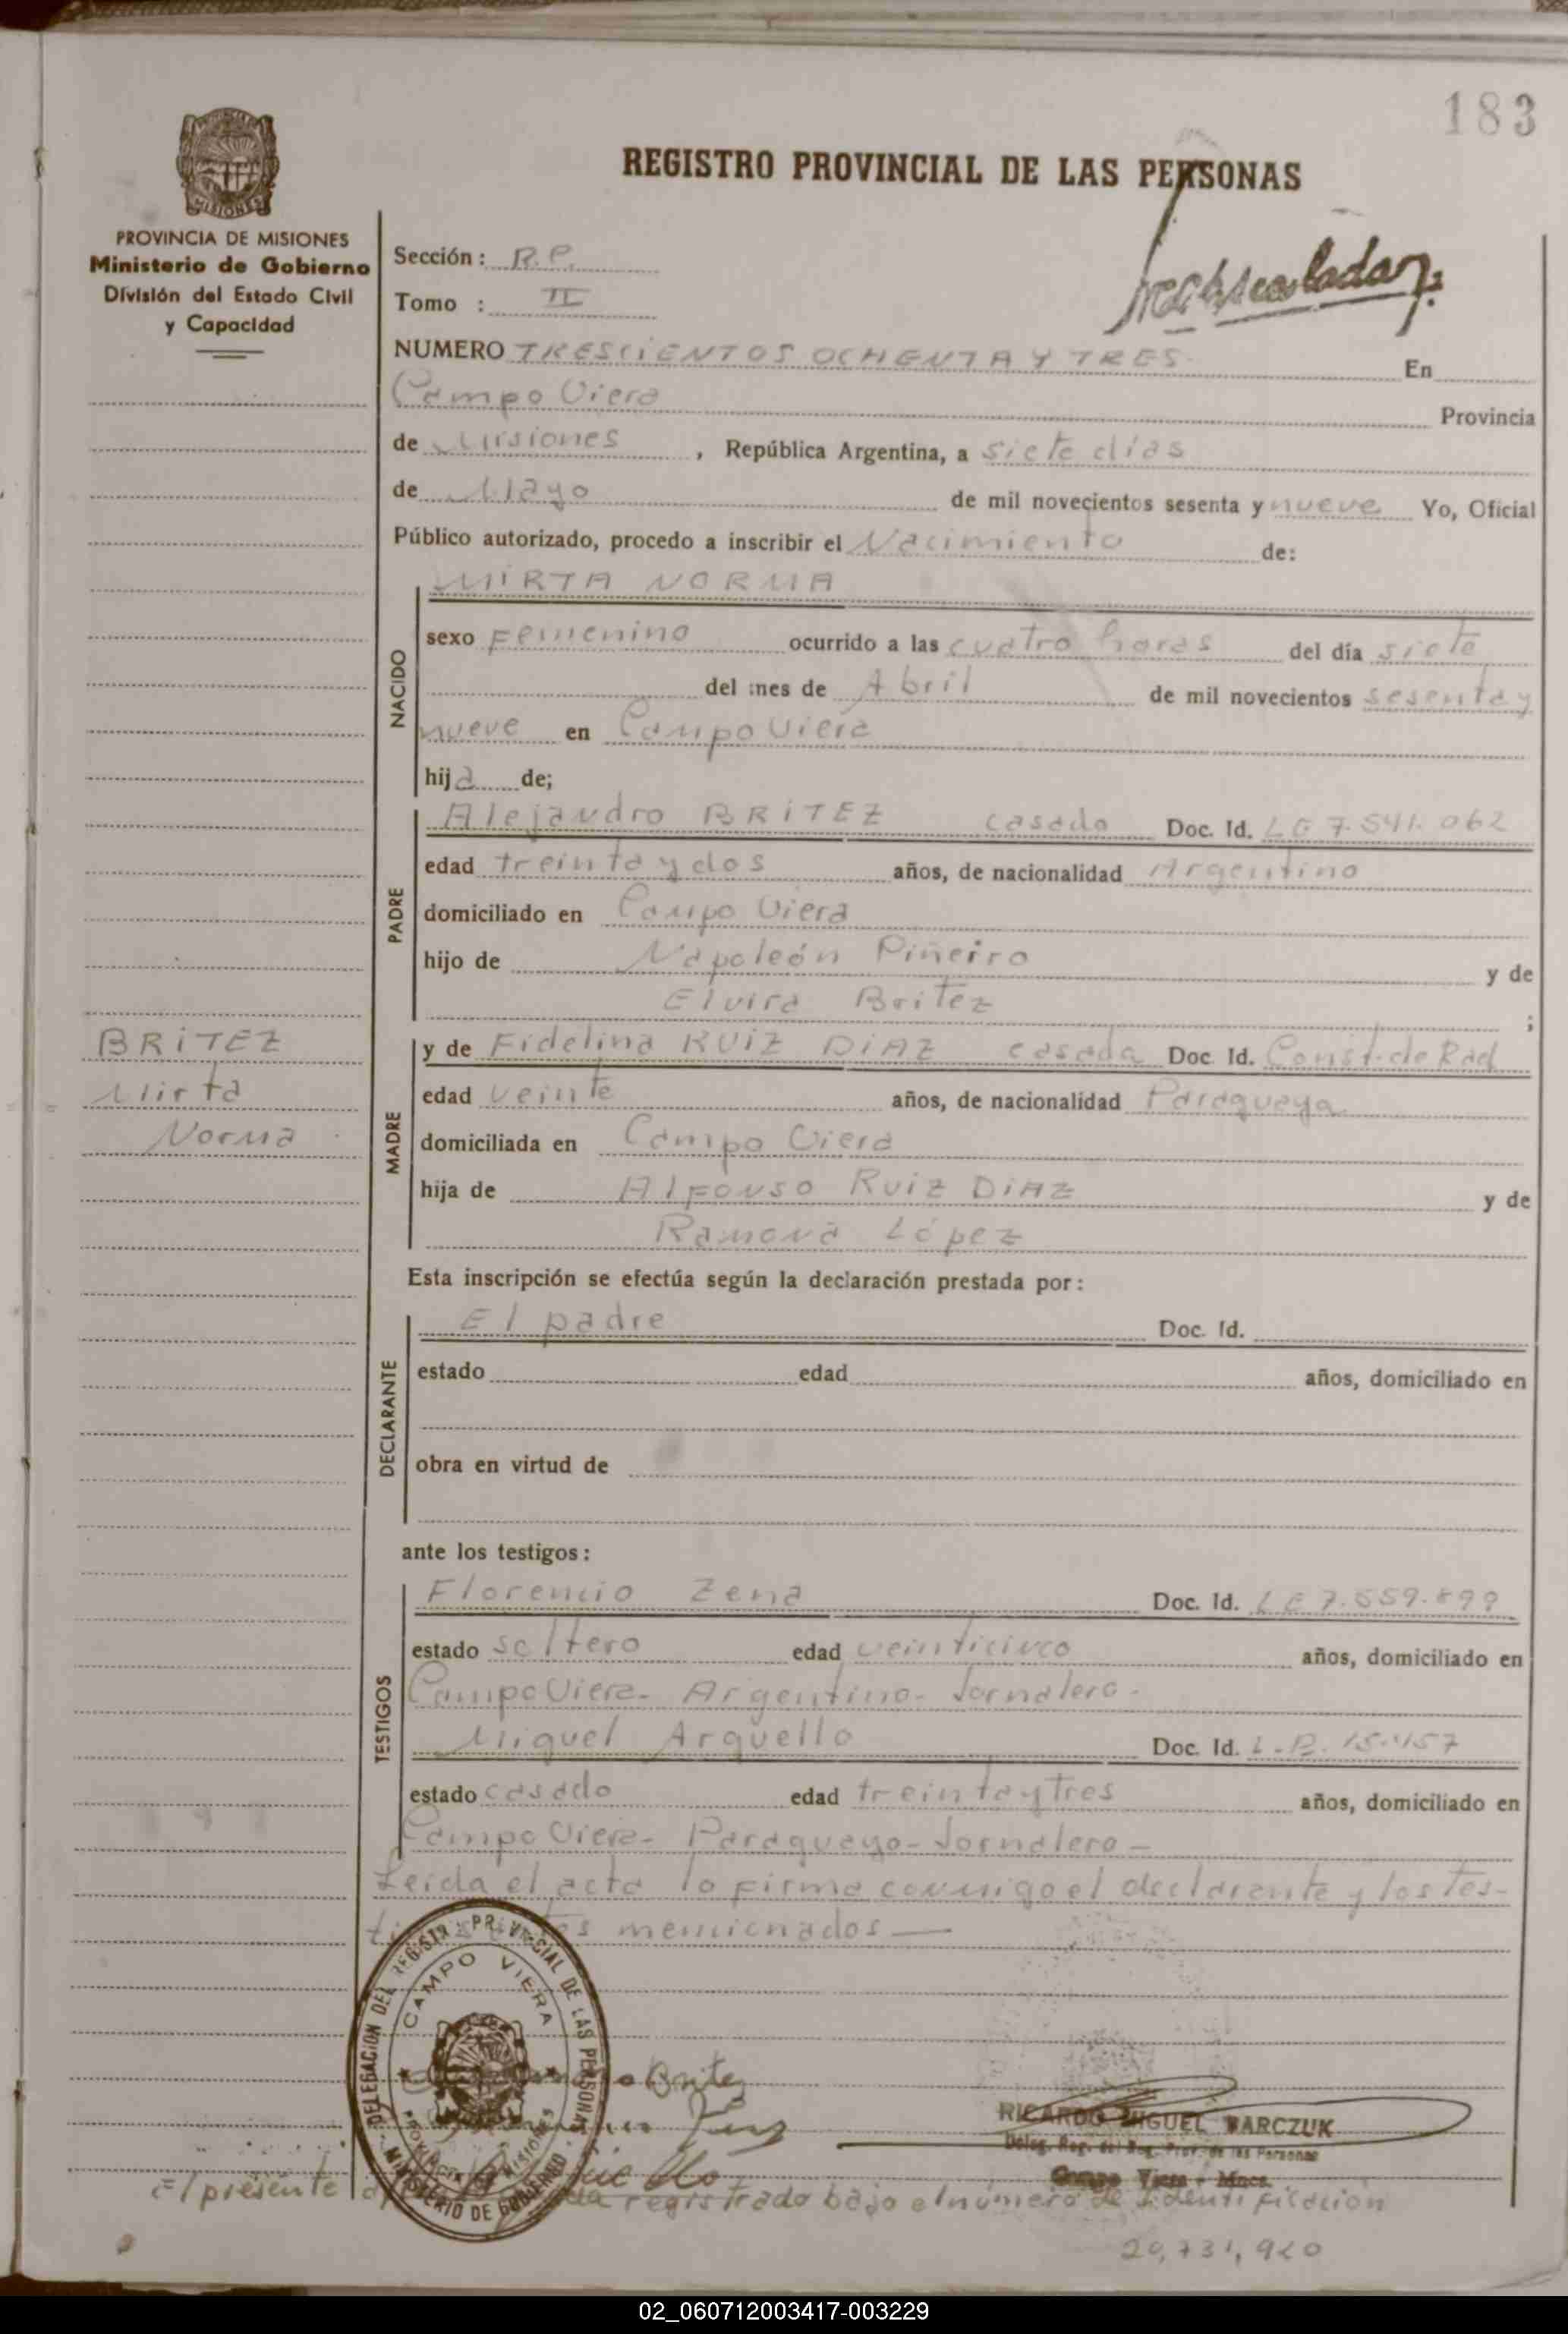 183
REGISTRO PROVINCIAL DE LAS PERSONAS
MISIONES
PROVINCIA DE MISIONES
Ministerio de Gobierno
División del Estado Civil
y Capacidad
Sección: R.P.
Tomo : II
NUMERO TRESCIENTOS OCHENTA Y TRES En
Campo Viera Provincia
de Misiones, República Argentina, a siete días
de Mayo de mil novecientos sesenta y nueve Yo, Oficial
Público autorizado, procedo a inscribir el Nacimiento de:
NACIDO
MIRTA NORMA
sexo Femenino ocurrido a las cuatro horas del día siete
del mes de Abril de mil novecientos sesenta y
nueve en Campo Viera
hija de;
PADRE
Alejandro BRITEZ casado Doc. Id. LE 7.541.062
edad treinta y dos años, de nacionalidad Argentino
domiciliado en Campo Viera
hijo de Napoleón Piñeiro y de
Elvira Britez ;
BRITEZ
Mirta
Norma
MADRE
y de Fidelina RUIZ DIAZ casada Doc. Id. Const. de Rad
edad veinte años, de nacionalidad Paraguaya
domiciliada en Campo Viera
hija de Alfonso Ruiz DIAZ y de
Ramona López
Esta inscripción se efectúa según la declaración prestada por:
DECLARANTE
El padre Doc. Id.
estado edad años, domiciliado en
obra en virtud de
ante los testigos:
TESTIGOS
Florencio Zena Doc. Id. LE 7.559.899
estado soltero edad veinticinco años, domiciliado en
Campo Viera- Argentino- Jornalero-
Miguel Arguello Doc. Id.
estado casado edad treinta y tres años, domiciliado en
Campo Viera- Paraguayo- Jornalero-
Leida el acta lo firma conmigo el declarante y los tes-
mencionados —
DELEGACION DEL REGISTRO PROVINCIAL DE LAS PERSONAS
CAMPO VIERA
PROVINCIA MISIONES
MINISTERIO DE GOBIERNO
Britez
RICARDO MIGUEL WARCZUK
Deleg. Reg. del Reg. Prov. de las Personas
Campo Viera - Mnes.
El presente registrado bajo el número de identificación
20,731,920
02_060712003417-003229